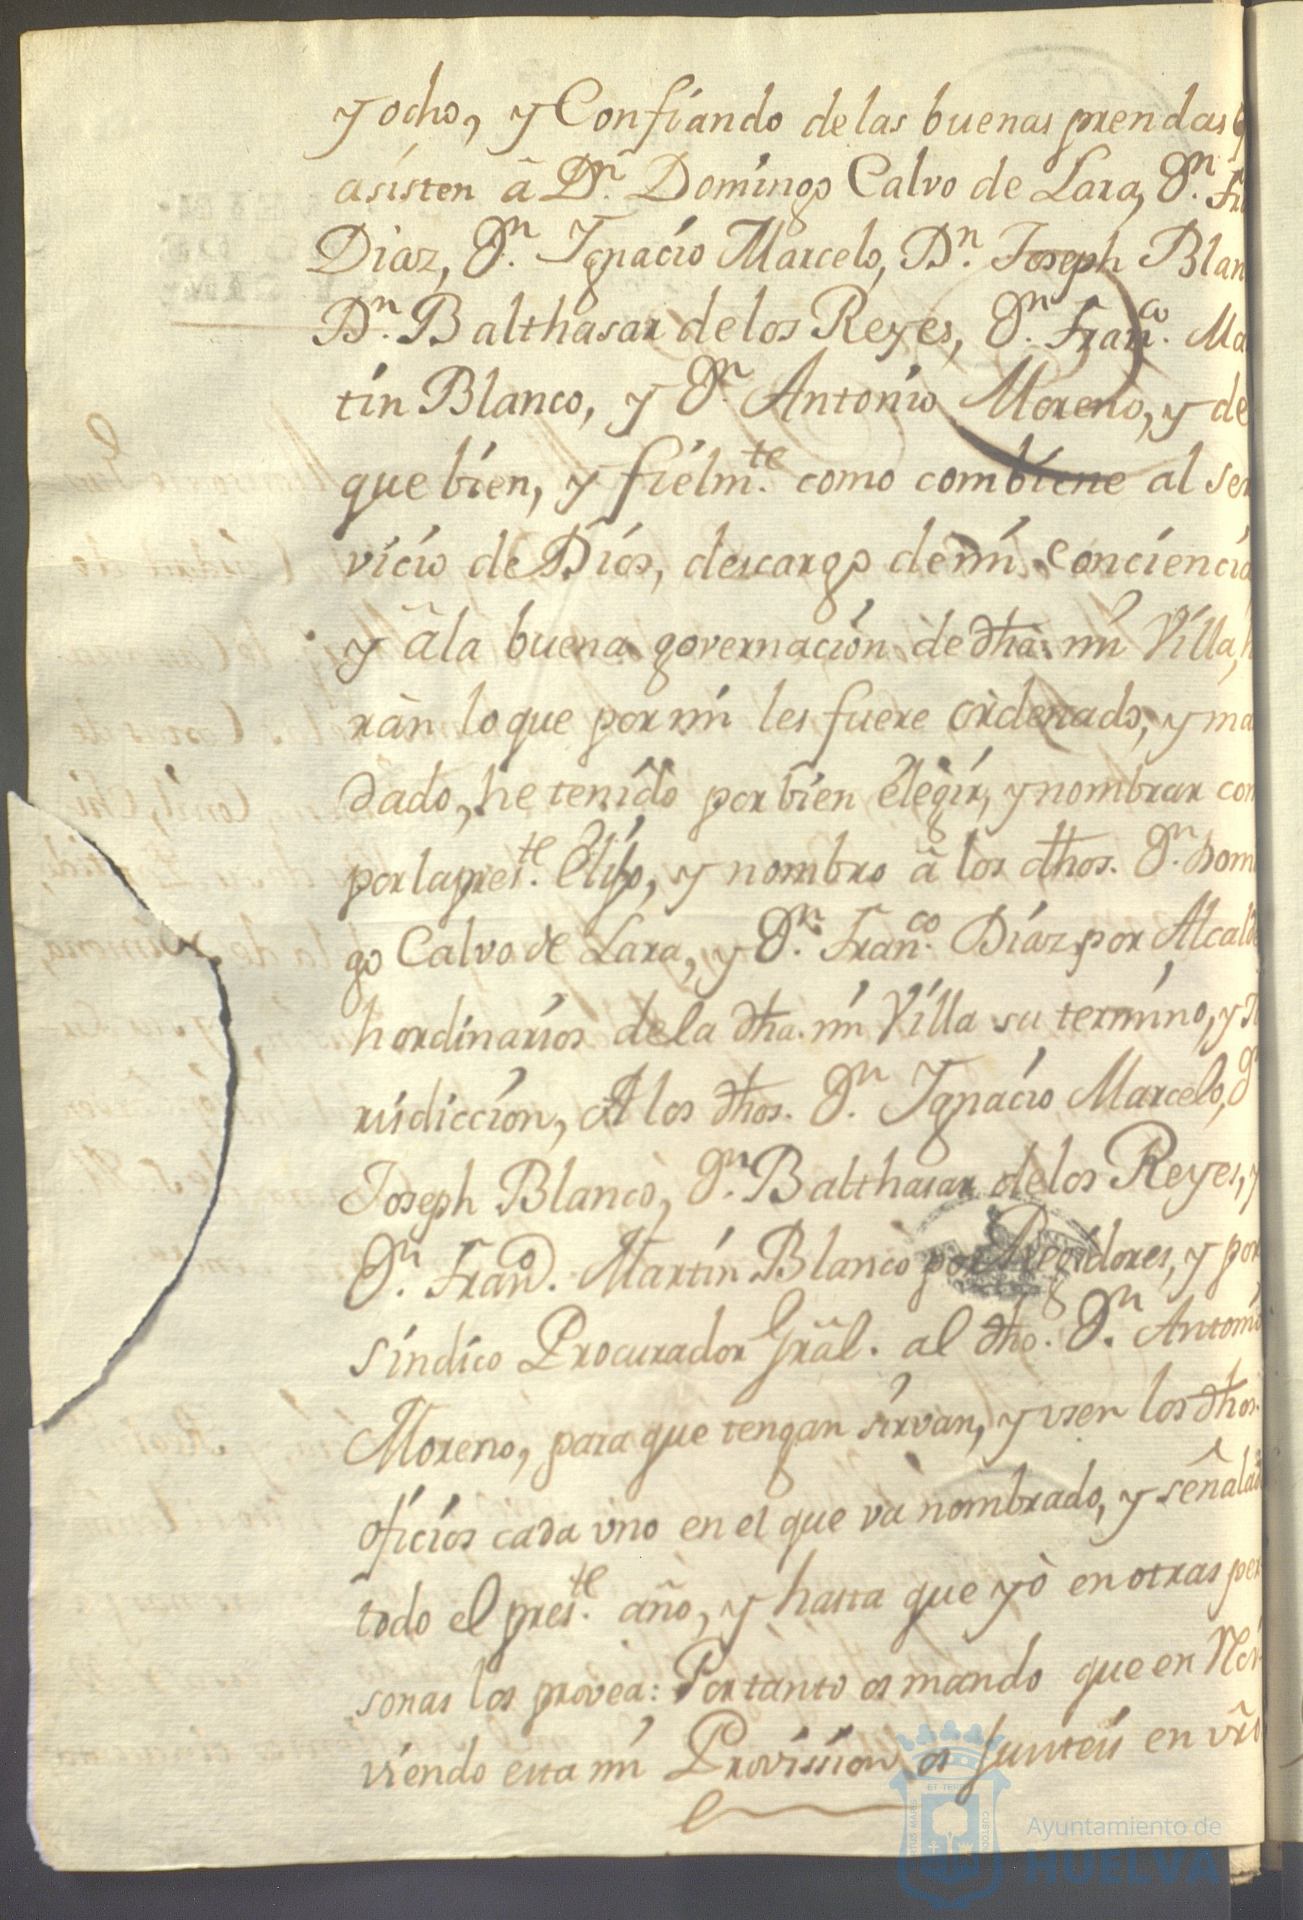 y ocho, y Confiando de las buenas prendas q
asisten â Dn. Domingo Calvo de Lara, Dn. Fr
Diaz, Dn. Ignacio Marcelo, Dn. Joseph Blan
Dn. Balthasar de los Reyes, Dn. Franco. Ma
tin Blanco, y Dn. Antonio Moreno, y de
que bien, y fielmte. como combiene al ser
vicio de Dios, descargo de mi conciencia
y âla buena governacion de dha. mi Villa, h
ràn lo que por mi les fuere ordenado, y ma
dado, he tenido por bien elegir, y nombrar com
por la preste. Elijo, y nombro â los dhos. Dn. Dom
go Calvo de Lara, y Dn. Franco. Diaz por Alcald
hordinarios de la dha. mi Villa su termino, y Ju
risdiccion, A los dhos. Dn. Ignacio Marcelo, Dn
Joseph Blanco, Dn. Balthasar de los Reyes, y
Dn. Frando. Martin Blanco por Regidores, y por
sindico Procurador Grâl. al dho. Dn. Antonio
Moreno, para que tengan sirvan, y vsen los dhos.
oficios cada vno en el que và nombrado, y señalad
todo el preste. año, y hasta que yò en otras per
sonas los provea: Por tanto os mando que en Reci
viendo esta mi Provission os Junteis en vrô
Ayuntamiento de
HUELVA